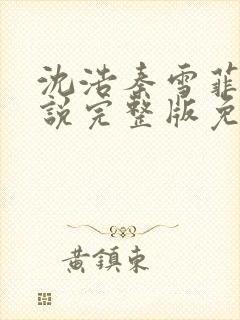 沈浩秦雪菲
説完整版免
黃鎮東